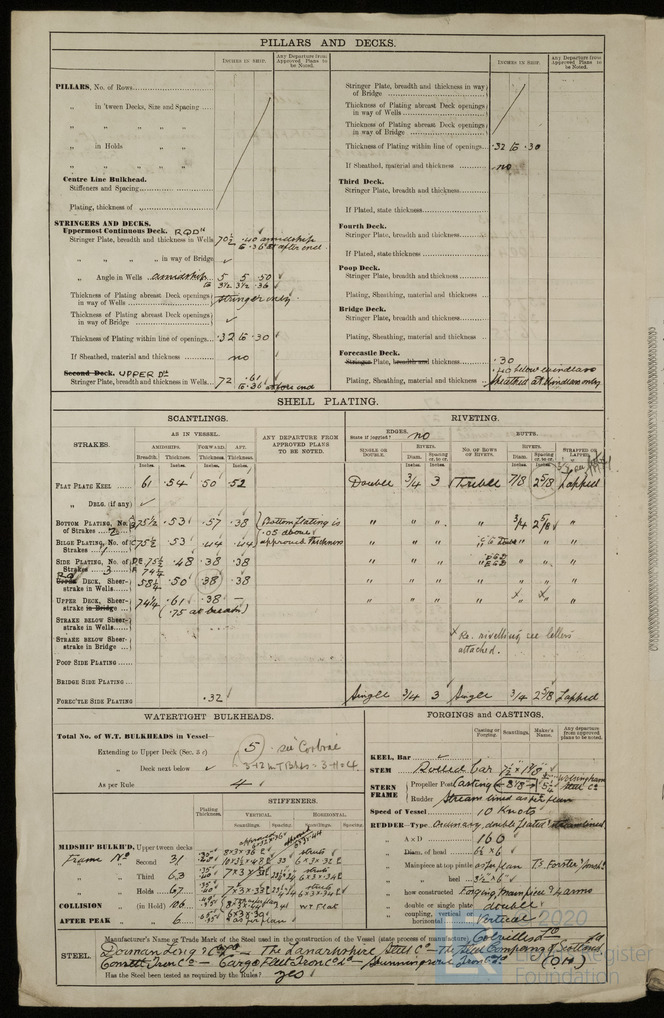 PILLARS AND DECKS.
INCHES IN SHIP.
Any Departure from Approved Plans to be Noted.
PILLARS, No. of Rows
„ in 'tween Decks, Size and Spacing
„ „ „ „
„ in Holds „ „
„ „ „ „
Centre Line Bulkhead.
Stiffeners and Spacing
Plating, thickness of „
STRINGERS AND DECKS.
Uppermost Continuous Deck. RQD"
Stringer Plate, breadth and thickness in Wells 70½ .40 amidship
to .36 at after end.
„ „ „ „ in way of Bridge
„ Angle in Wells amidship 5 5 .50
to 3½ 3½ .36
Thickness of Plating abreast Deck openings in way of Wells stringer only
Thickness of Plating abreast Deck openings in way of Bridge
Thickness of Plating within line of openings .32 to .30
If Sheathed, material and thickness no
Second Deck. UPPER Dk
Stringer Plate, breadth and thickness in Wells 72 .61
to .36 at fore end
INCHES IN SHIP.
Any Departure from Approved Plans to be Noted.
Stringer Plate, breadth and thickness in way of Bridge
Thickness of Plating abreast Deck openings in way of Wells
Thickness of Plating abreast Deck openings in way of Bridge
Thickness of Plating within line of openings .32 to .30
If Sheathed, material and thickness no
Third Deck.
Stringer Plate, breadth and thickness
If Plated, state thickness
Fourth Deck.
Stringer Plate, breadth and thickness
If Plated, state thickness
Poop Deck.
Stringer Plate, breadth and thickness
Plating, Sheathing, material and thickness
Bridge Deck.
Stringer Plate, breadth and thickness
Plating, Sheathing, material and thickness
Forecastle Deck.
Stringer Plate, breadth and thickness .30
.40 below windlass
Plating, Sheathing, material and thickness sheathed at windlass only
SHELL PLATING.
SCANTLINGS.
RIVETING.
STRAKES.
AS IN VESSEL.
AMIDSHIPS. FORWARD. AFT.
Breadth. Thickness. Thickness. Thickness.
Inches Inches Inches Inches
ANY DEPARTURE FROM APPROVED PLANS TO BE NOTED.
EDGES.
State if joggled? no
SINGLE OR DOUBLE.
RIVETS.
Diam. Spacing cr. to cr.
Inches Inches
BUTTS.
NO. OF ROWS OF RIVETS.
RIVETS.
Diam. Spacing cr. to cr.
Inches Inches
STRAPPED OR LAPPED.
FLAT PLATE KEEL 61 .54 .50 .52 Double 3/4 3 Treble 7/8 2 5/8 Lapped
„ DBLG. (if any)
BOTTOM PLATING, No. of Strakes 2 75½ .53 .57 .38 Bottom plating is .05 above approved thickness „ „ „ „ 3/4 2 5/8 „
BILGE PLATING, No. of Strakes 1 75½ .53 .44 .44 „ „ „ „ „
SIDE PLATING, No. of Strakes 3 75½ .48 .38 .38 „ „ „ „ „
74¼
RQ DECK, Sheerstrake in Wells 58½ .50 .38 .38 „ „ „ „ „ „ „
UPPER DECK, Sheerstrake in Bridge 74¼ .61 .38 — „ „ „ „ x x „
(.75 at breaks)
STRAKE BELOW Sheerstrake in Wells
x Re. rivelling see letters
attached.
STRAKE BELOW Sheerstrake in Bridge
POOP SIDE PLATING
BRIDGE SIDE PLATING
FORECTLE SIDE PLATING .32 Single 3/4 3 Single 3/4 2 5/8 Lapped
WATERTIGHT BULKHEADS.
Total No. of W.T. BULKHEADS in Vessel—
Extending to Upper Deck (Sec. 3 c) 5
„ Deck next below
As per Rule 4
Plating Thickness.
STIFFENERS.
VERTICAL. HORIZONTAL.
Scantlings. Spacing. Scantlings. Spacing.
MIDSHIP BULKH'D, Upper tween decks
Frame No Second „ 31
„ Third „ 63
„ Holds „ 67
COLLISION „ (in Hold) 106
AFTER PEAK „ „ 6 as per plan
FORGINGS and CASTINGS.
Casting or Forging. Scantlings. Maker's Name. Any departure from approved plans to be noted.
KEEL, Bar
STEM Rolled bar 7½ x 1 7/8
STERN FRAME
Propeller Post Casting Wolsingham Steel Co
Rudder „ Stream lined as per plan
Speed of Vessel 10 Knots
RUDDER—Type Ordinary, double plated
„ A x D 160
„ Diam. of head
Mainpiece at top pintle as per plan
„ heel
„ how constructed Forging mainpiece & arms
„ double or single plate double
„ coupling, vertical or horizontal Vertical
STEEL.
Manufacturer's Name or Trade Mark of the Steel used in the construction of the Vessel (state process of manufacture) Colvilles Ld
Dorman Long & Co — The Lanarkshire Steel Co — The Steel Company of Scotland Ld
Consett Iron Co — Cargo Fleet Iron Co Ld — Skinningrove Iron Co Ld (O.H)
Has the Steel been tested as required by the Rules? yes
© 2020
Lloyd's Register
Foundation